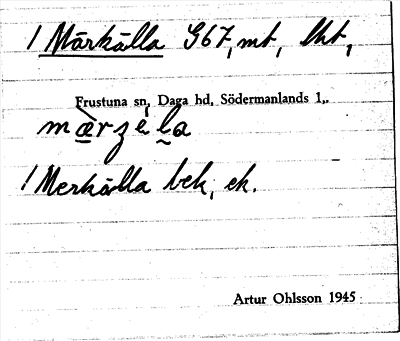 1 Märkälla G67, mt, lht,
Frustuna sn, Daga hd, Södermanlands l,.
mærzela
1 Merkälla bek, ek.
Artur Ohlsson 1945